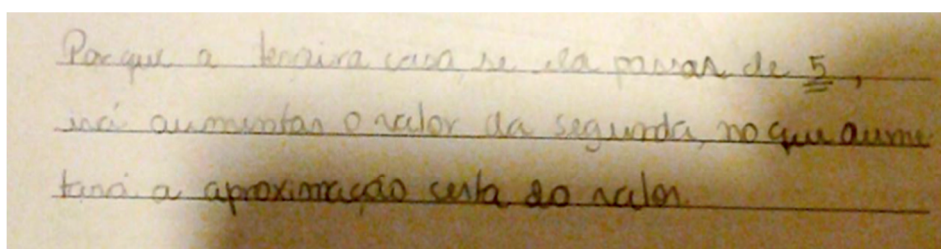 Porque a terceira casa, se ela passar de 5,
irá aumentar o valor da segunda, no que aume
tará a aproximação certa do valor.